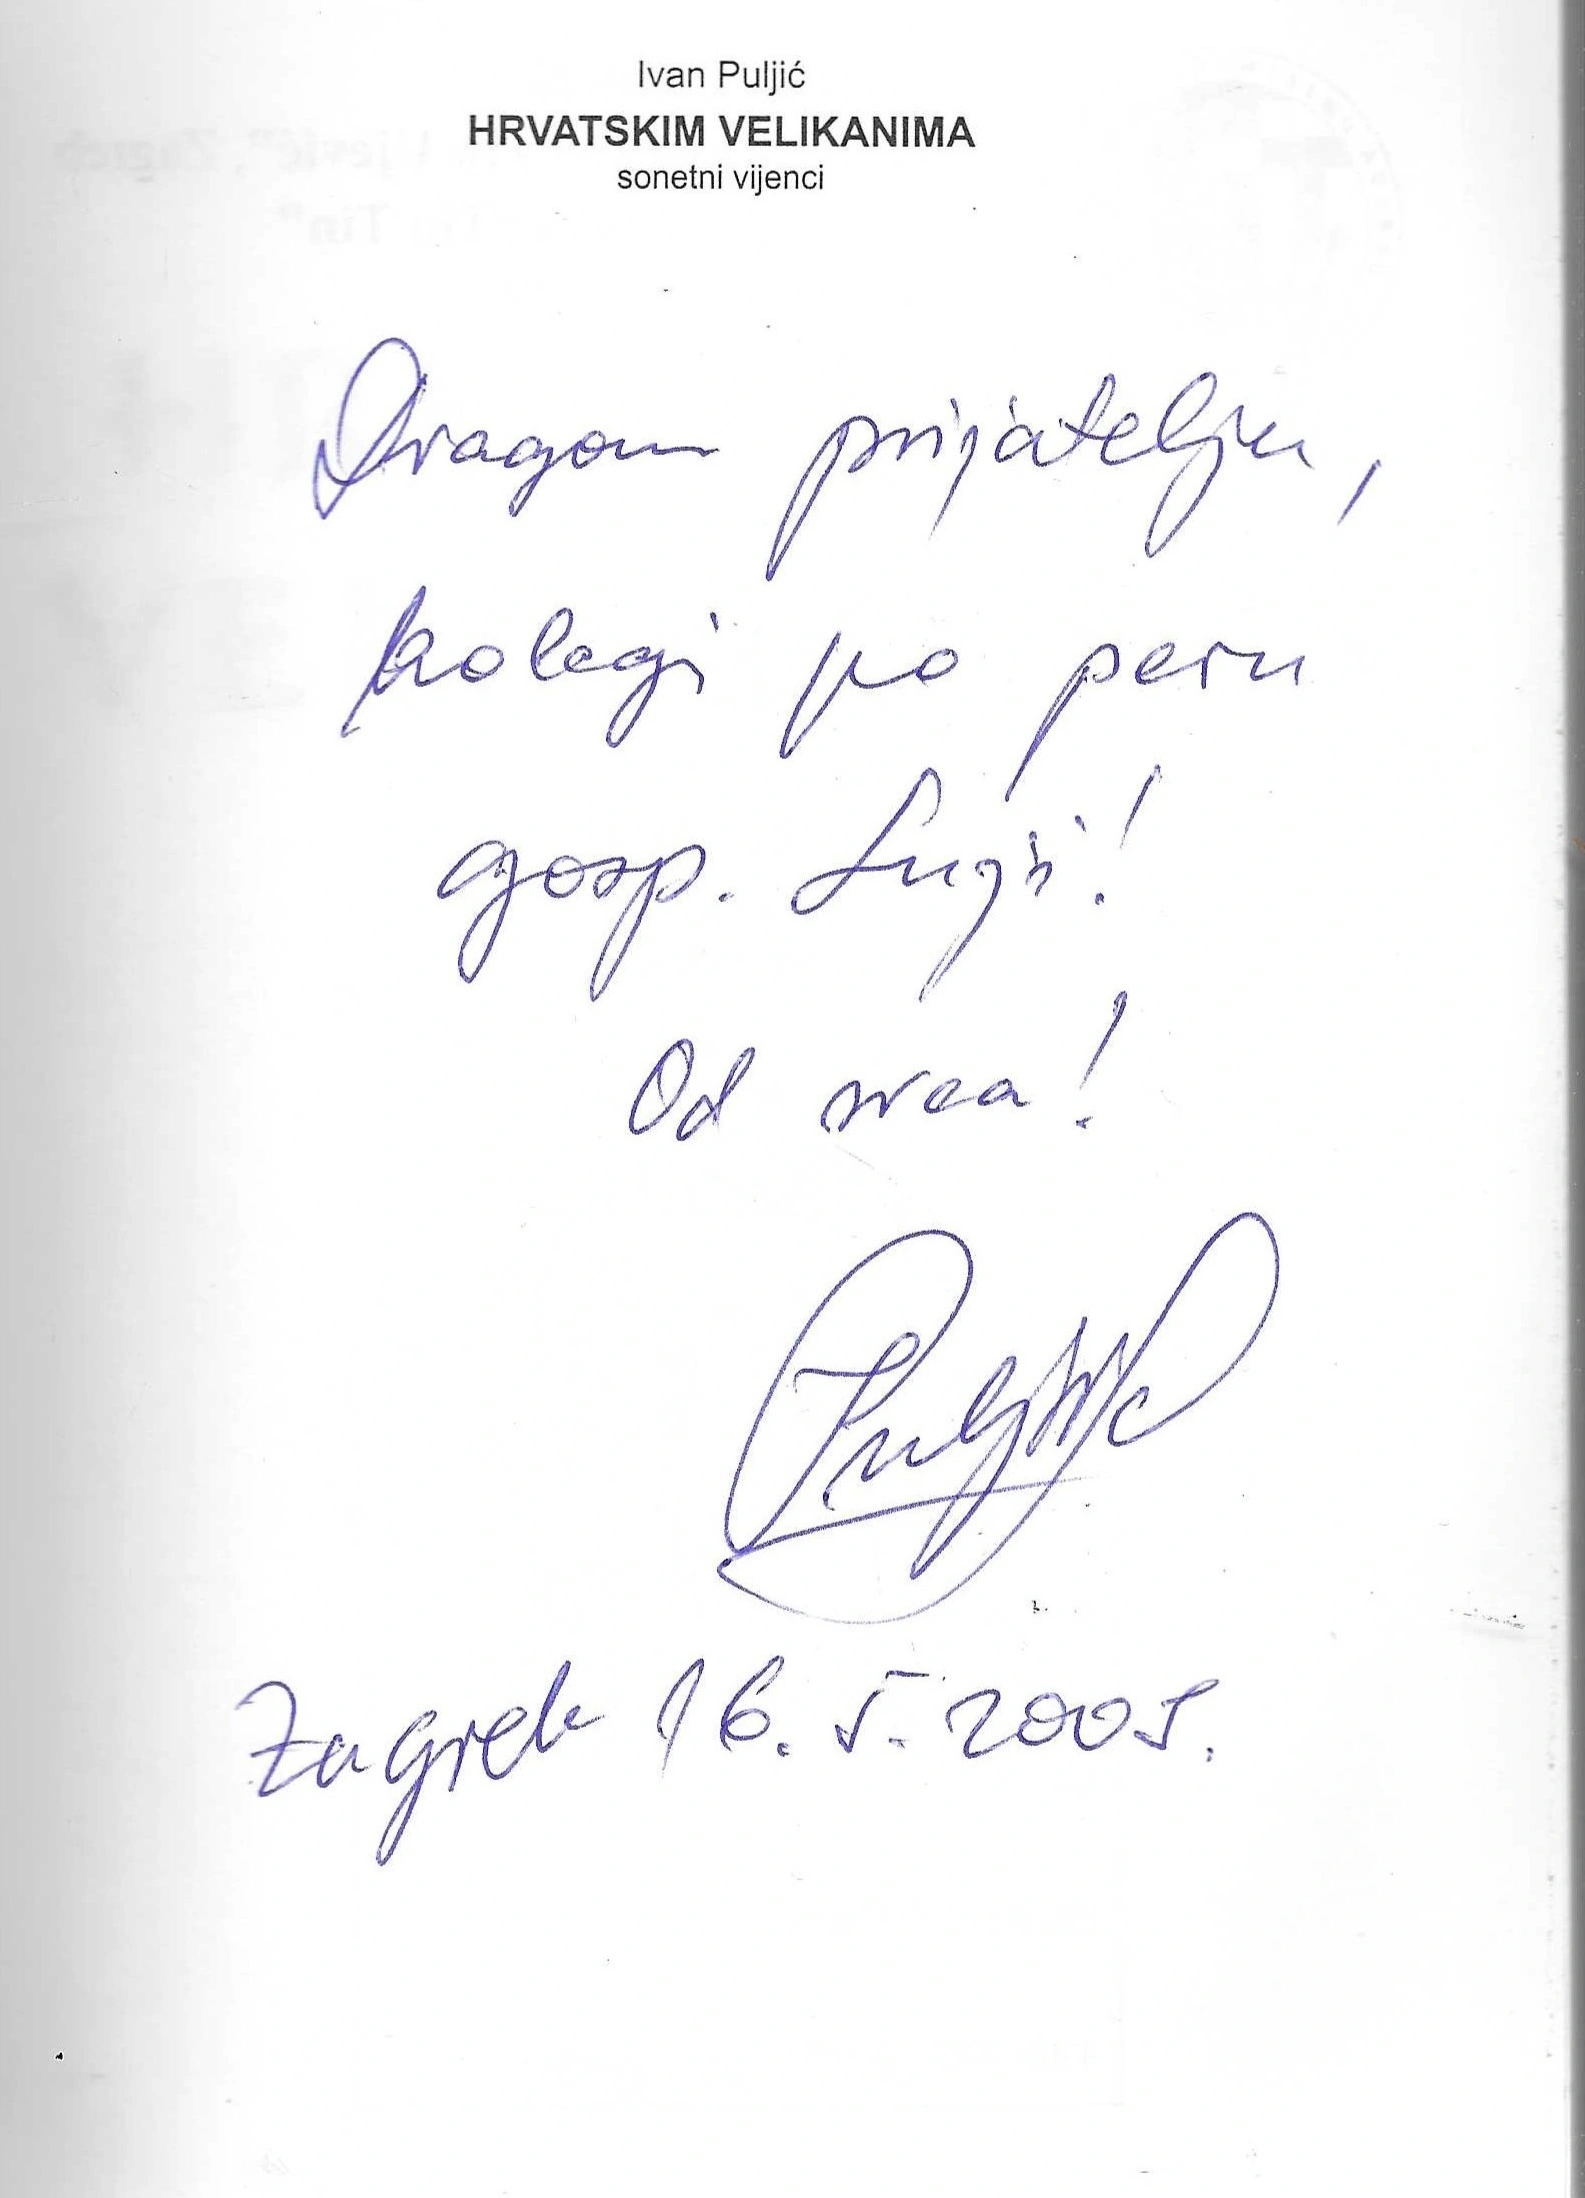 Ivan Puljić
HRVATSKIM VELIKANIMA
sonetni vijenci
Dragom prijatelju,
kolegi po peru
gosp.
Od srca!
Puljić
Zagreb 16. 5. 2005.